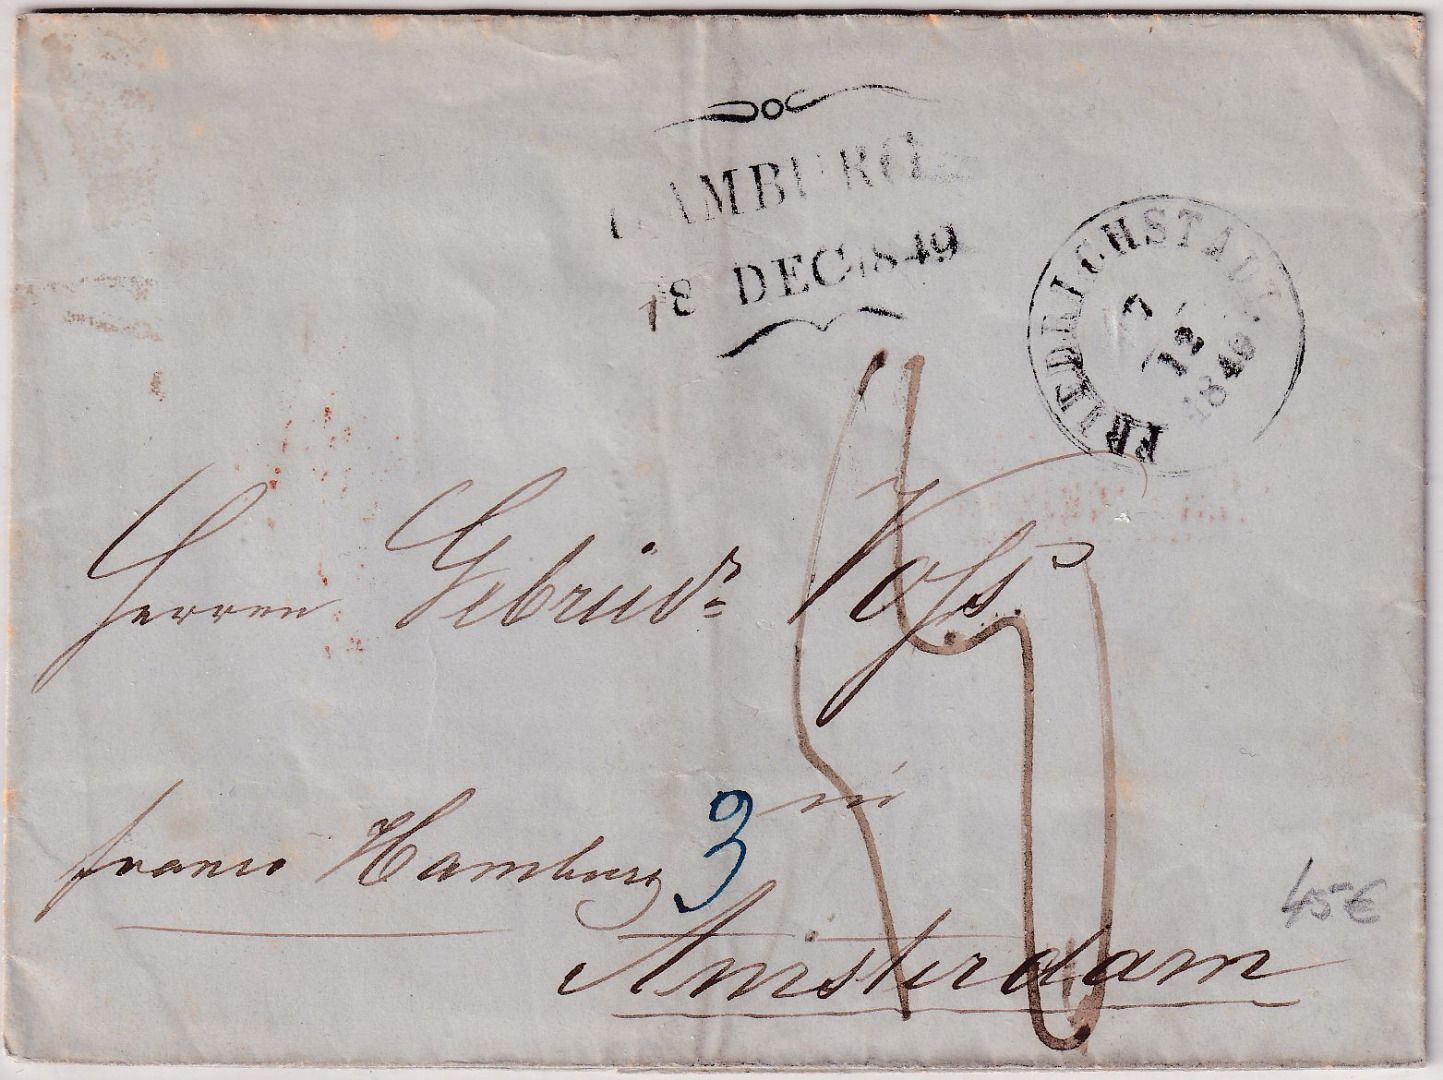 HAMBURG
18 DEC. 1849
FRIEDRICHSTADT.
17
12
1849
Herren Gebrüdr Voss
in
franco Hamburg 3
Amsterdam
45€